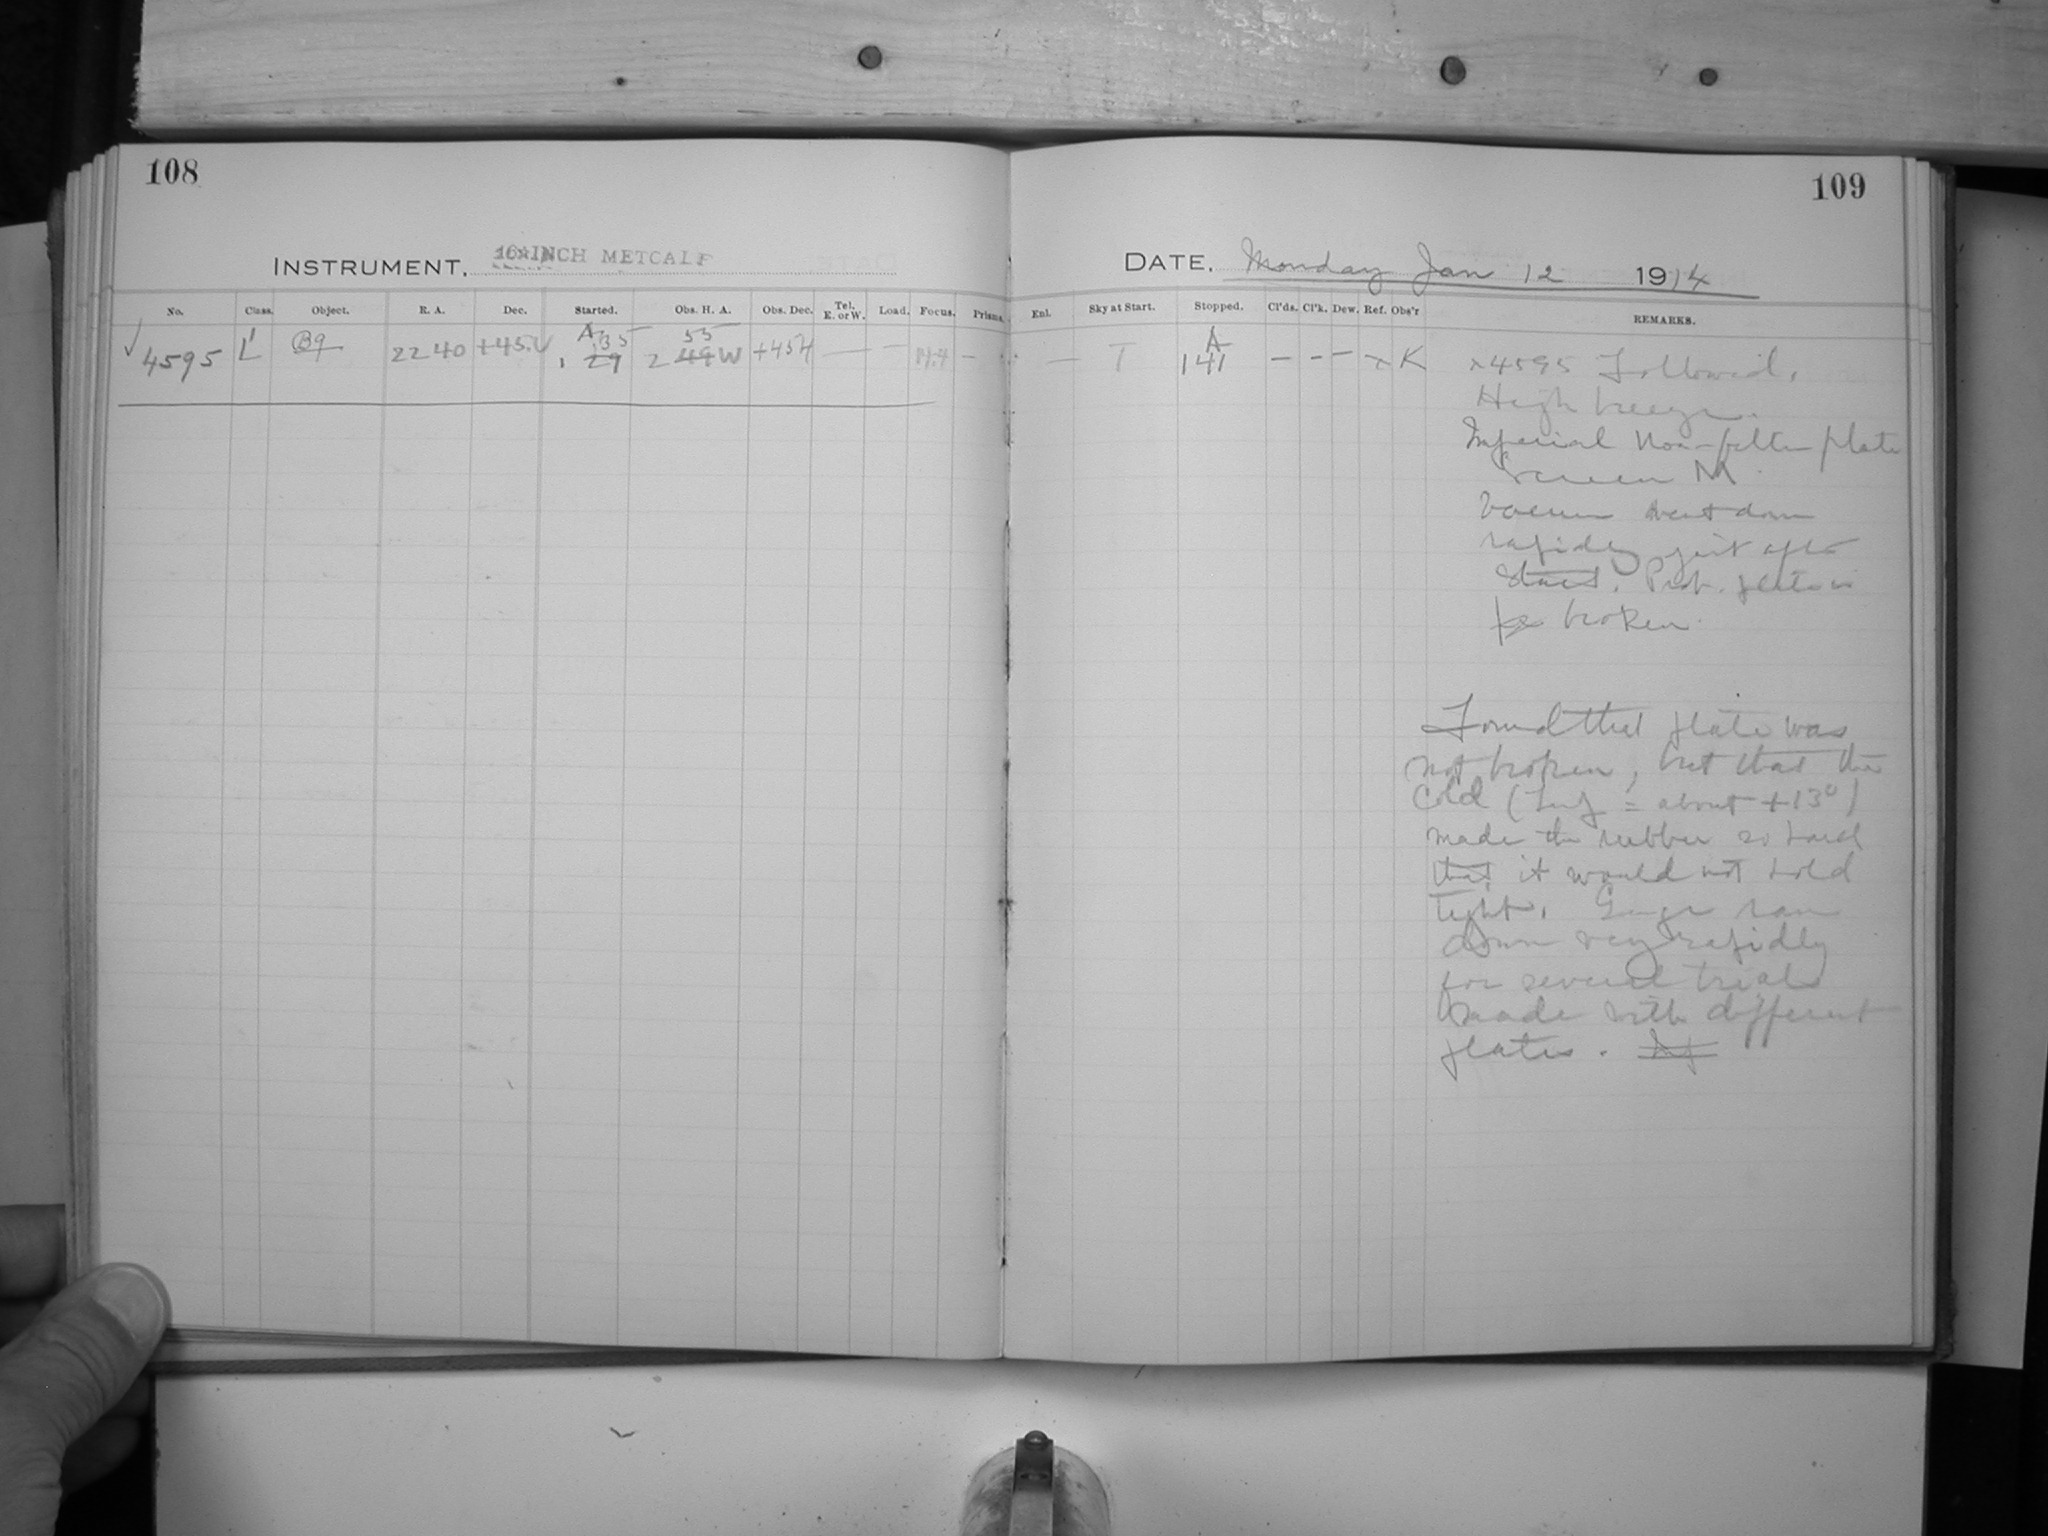 108
109
INSTRUMENT, 16-INCH METCALF
DATE, Monday Jan 12 1914
No. Class. Object. R. A. Dec. Started. Obs. H. A. Obs. Dec. Tel. E. or W. Load. Focus. Prisms. Enl. Sky at Start. Stopped. Cl'ds. Cl'k. Dew. Ref. Obs'r REMARKS.
A 35 55 A
✓ 4595 L B9 22 40 +45. 1 29 2 49 W +45 — — 14.4 — — T 1 41 — — — x K x4595 Followed.
High breeze.
Imperial Non-filter plate
Screen N
Vacuum went down
rapidly just after
start. Prob. plate is
broken.
Found that plate was
not broken, but that the
cold (Temp = about +13°)
made the rubber so hard
that it would not hold
tight. Gauge ran
down very rapidly
for several trials
made with different
plates.